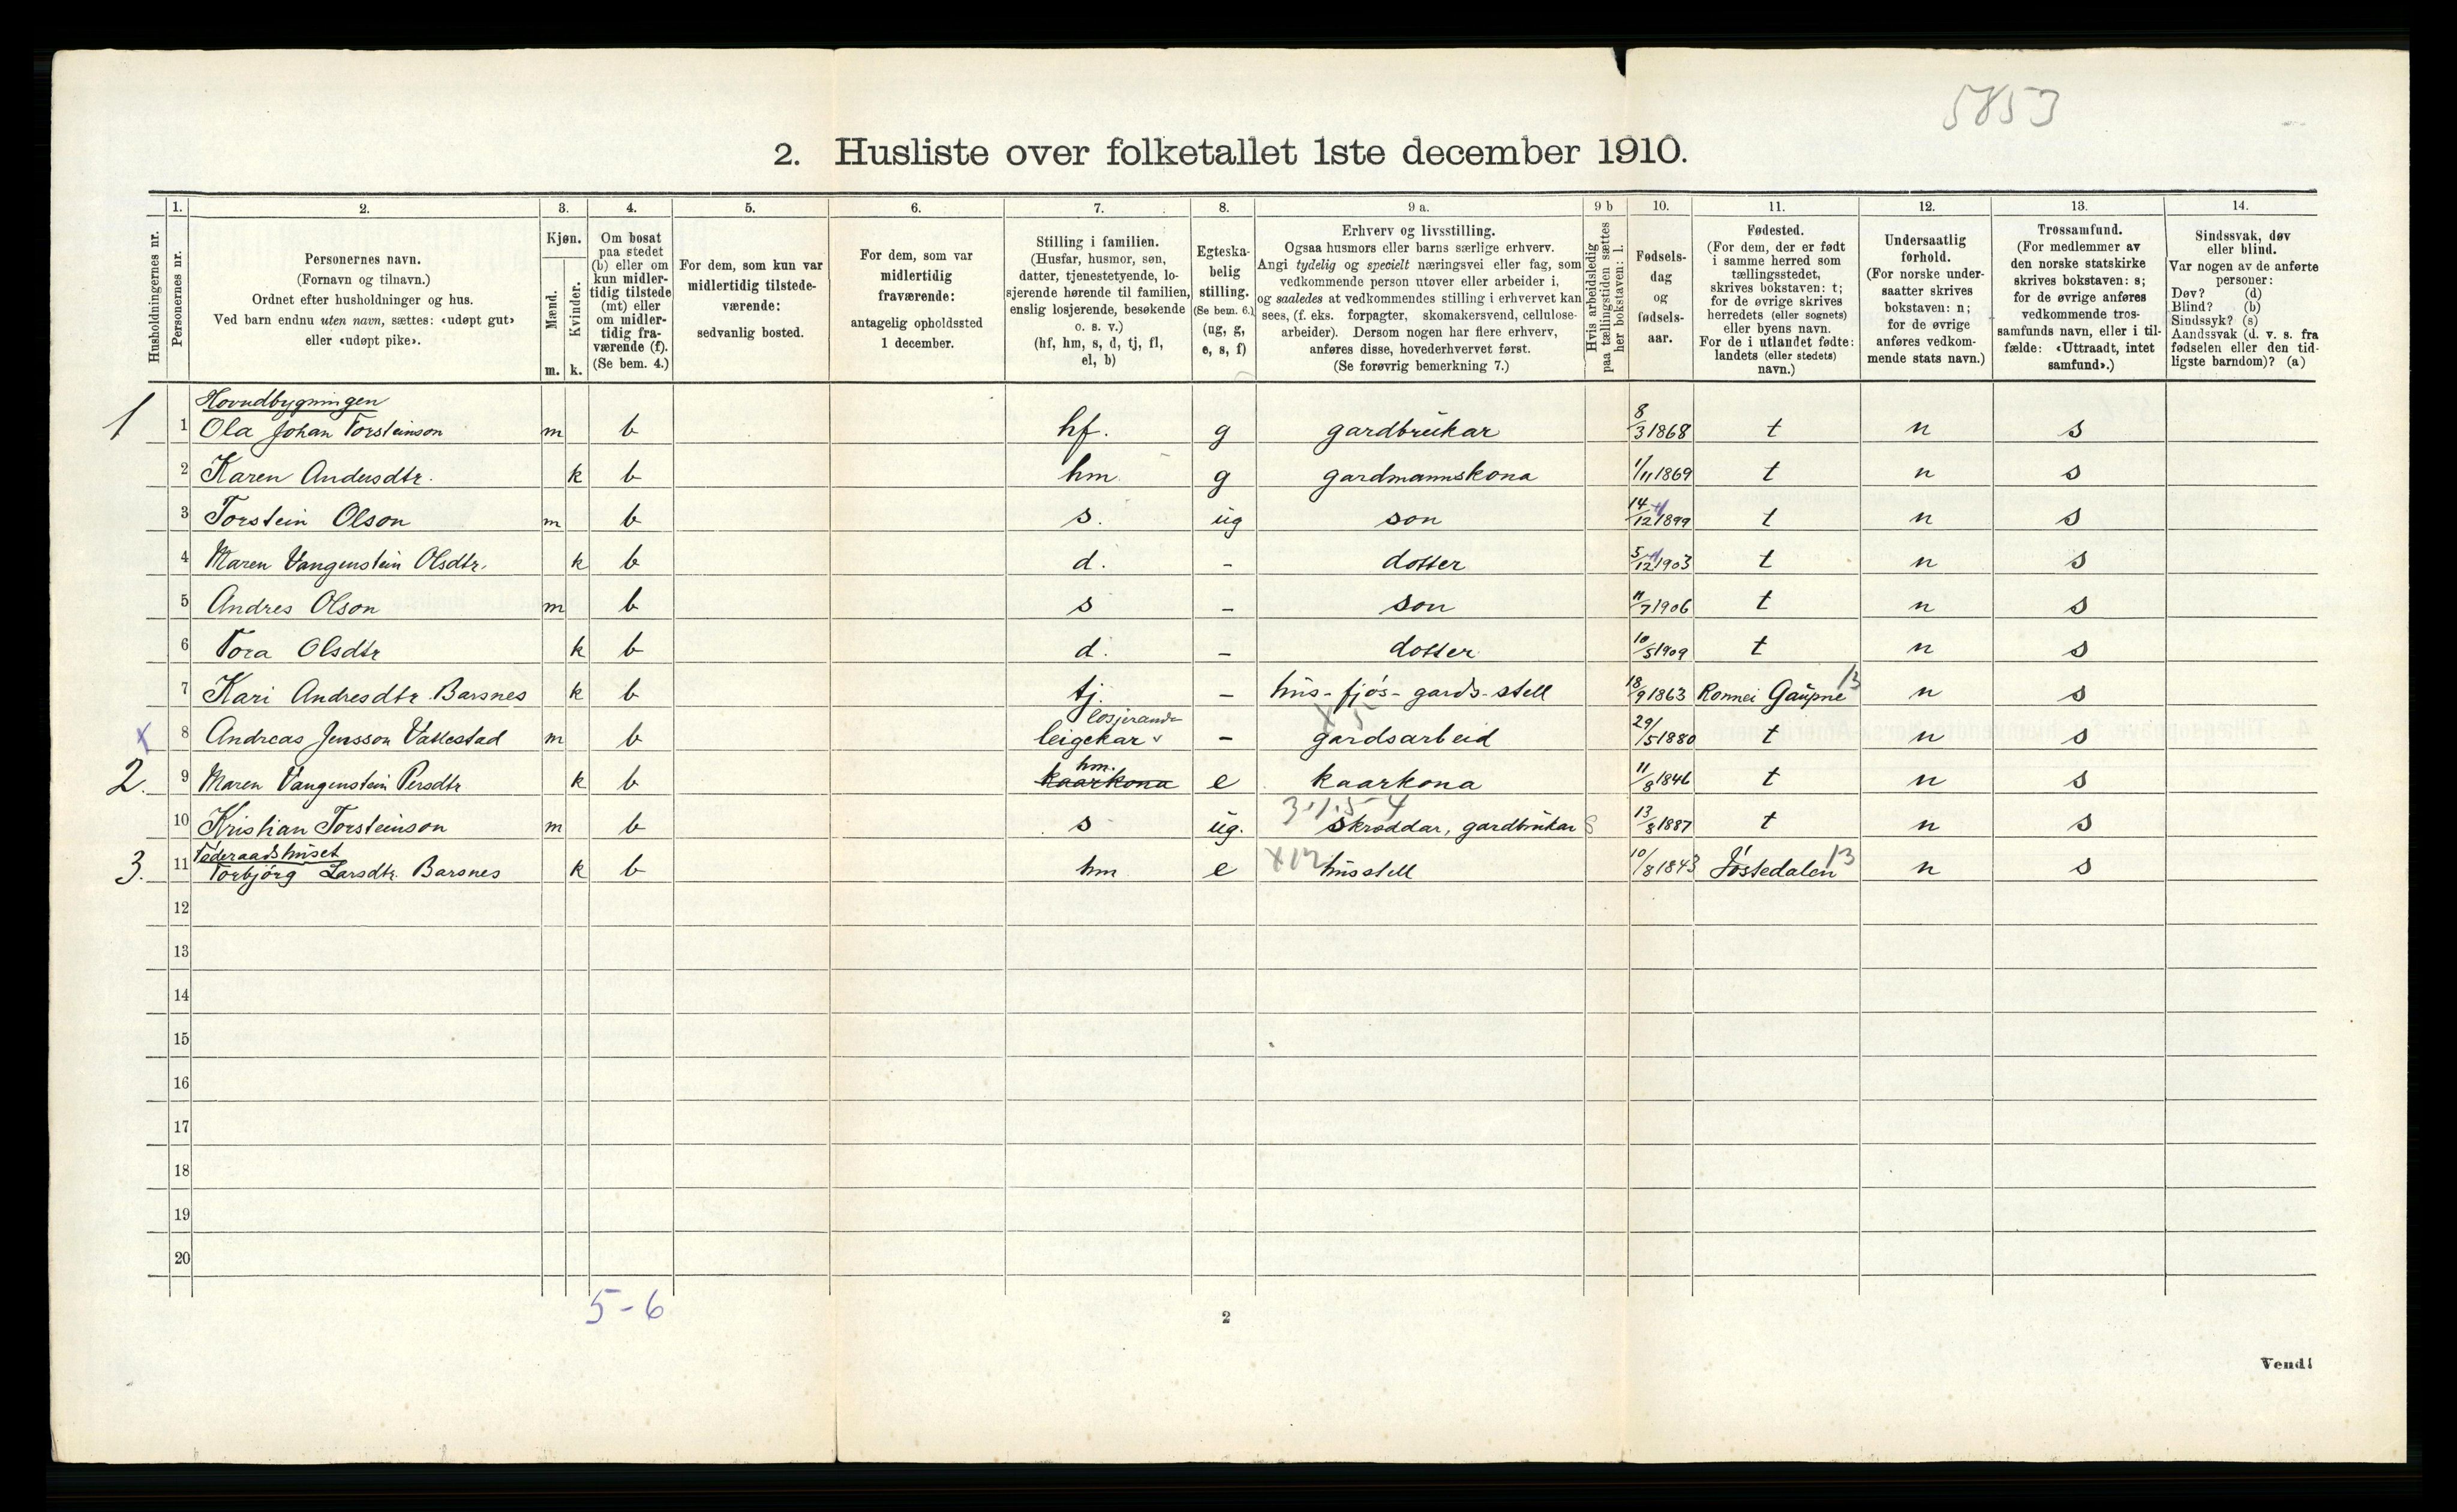 5853
2. Husliste over folketallet 1ste december 1910.
Husholdningernes nr.
1.
Personernes nr.
2.
Personernes navn.
(Fornavn og tilnavn.)
Ordnet efter husholdninger og hus.
Ved barn endnu uten navn, sættes: «udøpt gut»
eller «udøpt pike».
3.
Kjøn.
Mænd.
Kvinder.
m. k.
4.
Om bosat
paa stedet
(b) eller om
kun midler-
tidig tilstede
(mt) eller
om midler-
tidig fra-
værende (f).
(Se bem. 4.)
5.
For dem, som kun var
midlertidig tilstede-
værende:
sedvanlig bosted.
6.
For dem, som var
midlertidig
fraværende:
antagelig opholdssted
1 december.
7.
Stilling i familien.
(Husfar, husmor, søn,
datter, tjenestetyende, lo-
sjerende hørende til familien,
enslig losjerende, besøkende
o. s. v.)
(hf, hm, s, d, tj, fl,
el, b)
8.
Egteska-
belig
stilling.
(Se bem. 6.)
(ug, g,
e, s, f)
9 a.
Erhverv og livsstilling.
Ogsaa husmors eller barns særlige erhverv.
Angi tydelig og specielt næringsvei eller fag, som
vedkommende person utøver eller arbeider i,
og saaledes at vedkommendes stilling i erhvervet kan
sees, (f. eks. forpagter, skomakersvend, cellulose-
arbeider). Dersom nogen har flere erhverv,
anføres disse, hovederhvervet først.
(Se forøvrig bemerkning 7.)
9 b
Hvis arbeidsledig
paa tællingstiden sættes
her bokstaven: l.
10.
Fødsels-
dag
og
fødsels-
aar.
11.
Fødested.
(For dem, der er født
i samme herred som
tællingsstedet,
skrives bokstaven: t;
for de øvrige skrives
herredets (eller sognets)
eller byens navn.
For de i utlandet fødte:
landets (eller stedets)
navn.)
12.
Undersaatlig
forhold.
(For norske under-
saatter skrives
bokstaven: n;
for de øvrige
anføres vedkom-
mende stats navn.)
13.
Trossamfund.
(For medlemmer av
den norske statskirke
skrives bokstaven: s;
for de øvrige anføres
vedkommende tros-
samfunds navn, eller i til-
fælde: «Uttraadt, intet
samfund».)
14.
Sindssvak, døv
eller blind.
Var nogen av de anførte
personer:
Døv? (d)
Blind? (b)
Sindssyk? (s)
Aandssvak (d. v. s. fra
fødselen eller den tid-
ligste barndom)? (a)
Hovudbygningen
1 1 Ola Johan Torsteinson m b hf. g gardbrukar 8/3 1868 t n s
2 Karen Andersdtr. k b hm g gardmannskona 1/11 1869 t n s
3 Torstein Olson m b s. ug son 14/12 1899 t n s
4 Maren Vangenstein Olsdtr. k b d. - dotter 5/12 1903 t n s
5 Andres Olson m b s - son 11/7 1906 t n s
6 Tora Olsdtr k b d. - dotter 10/5 1909 t n s
7 Kari Andresdtr. Barsnes k b tj. - hus-fjós-gards-stell 18/9 1863 Ronnei Gaupne 13 n s
losjerande
x 8 Andreas Jensson Vallestad m b leigekar - gardsarbeid 29/5 1880 t n s
hm.
2. 9 Maren Vangenstein Persdtr k b kaarkona e kaarkona 11/8 1846 t n s
10 Kristian Torsteinson m b s ug. skræddar, gardbrukar 13/8 1887 t n s
Føderaadshuset
3. 11 Torbjörg Larsdtr. Barsnes k b hm e husstell 10/8 1843 Jóstedalen 13 n s
12
13
14
15
16
17
18
19
20
5-6
2
Vend!